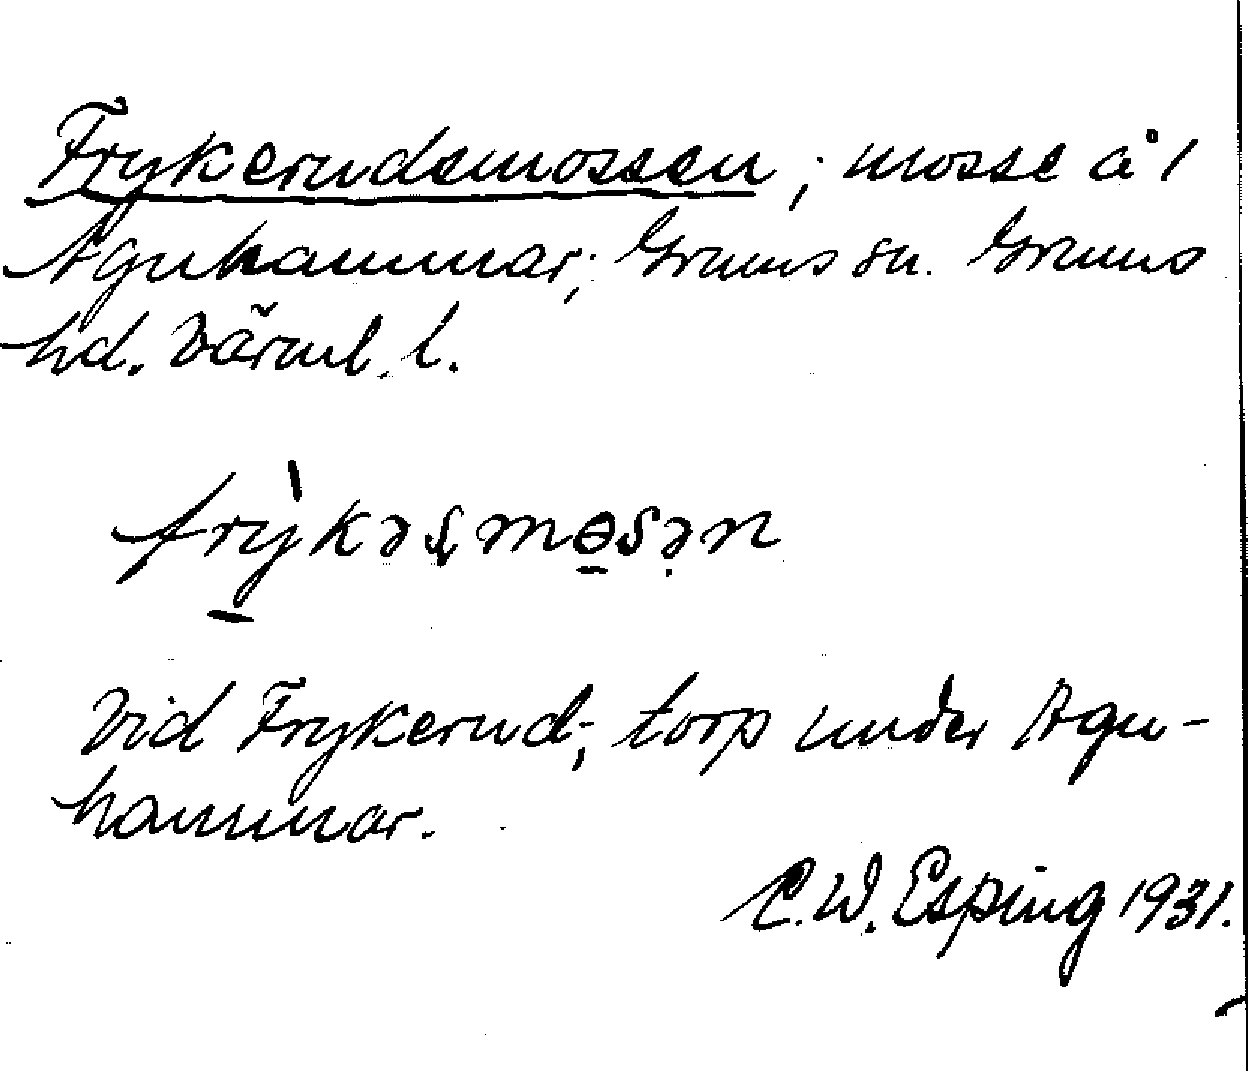 Frykerudsmossen, mosse å 1
Agnhammar, Grums sn. Grums
hd. Värml. l.
frỳ̠kəʂmɵ̠sə̣n
Vid Frykerud, torp under Agn-
hammar.
C. W. Esping 1931.